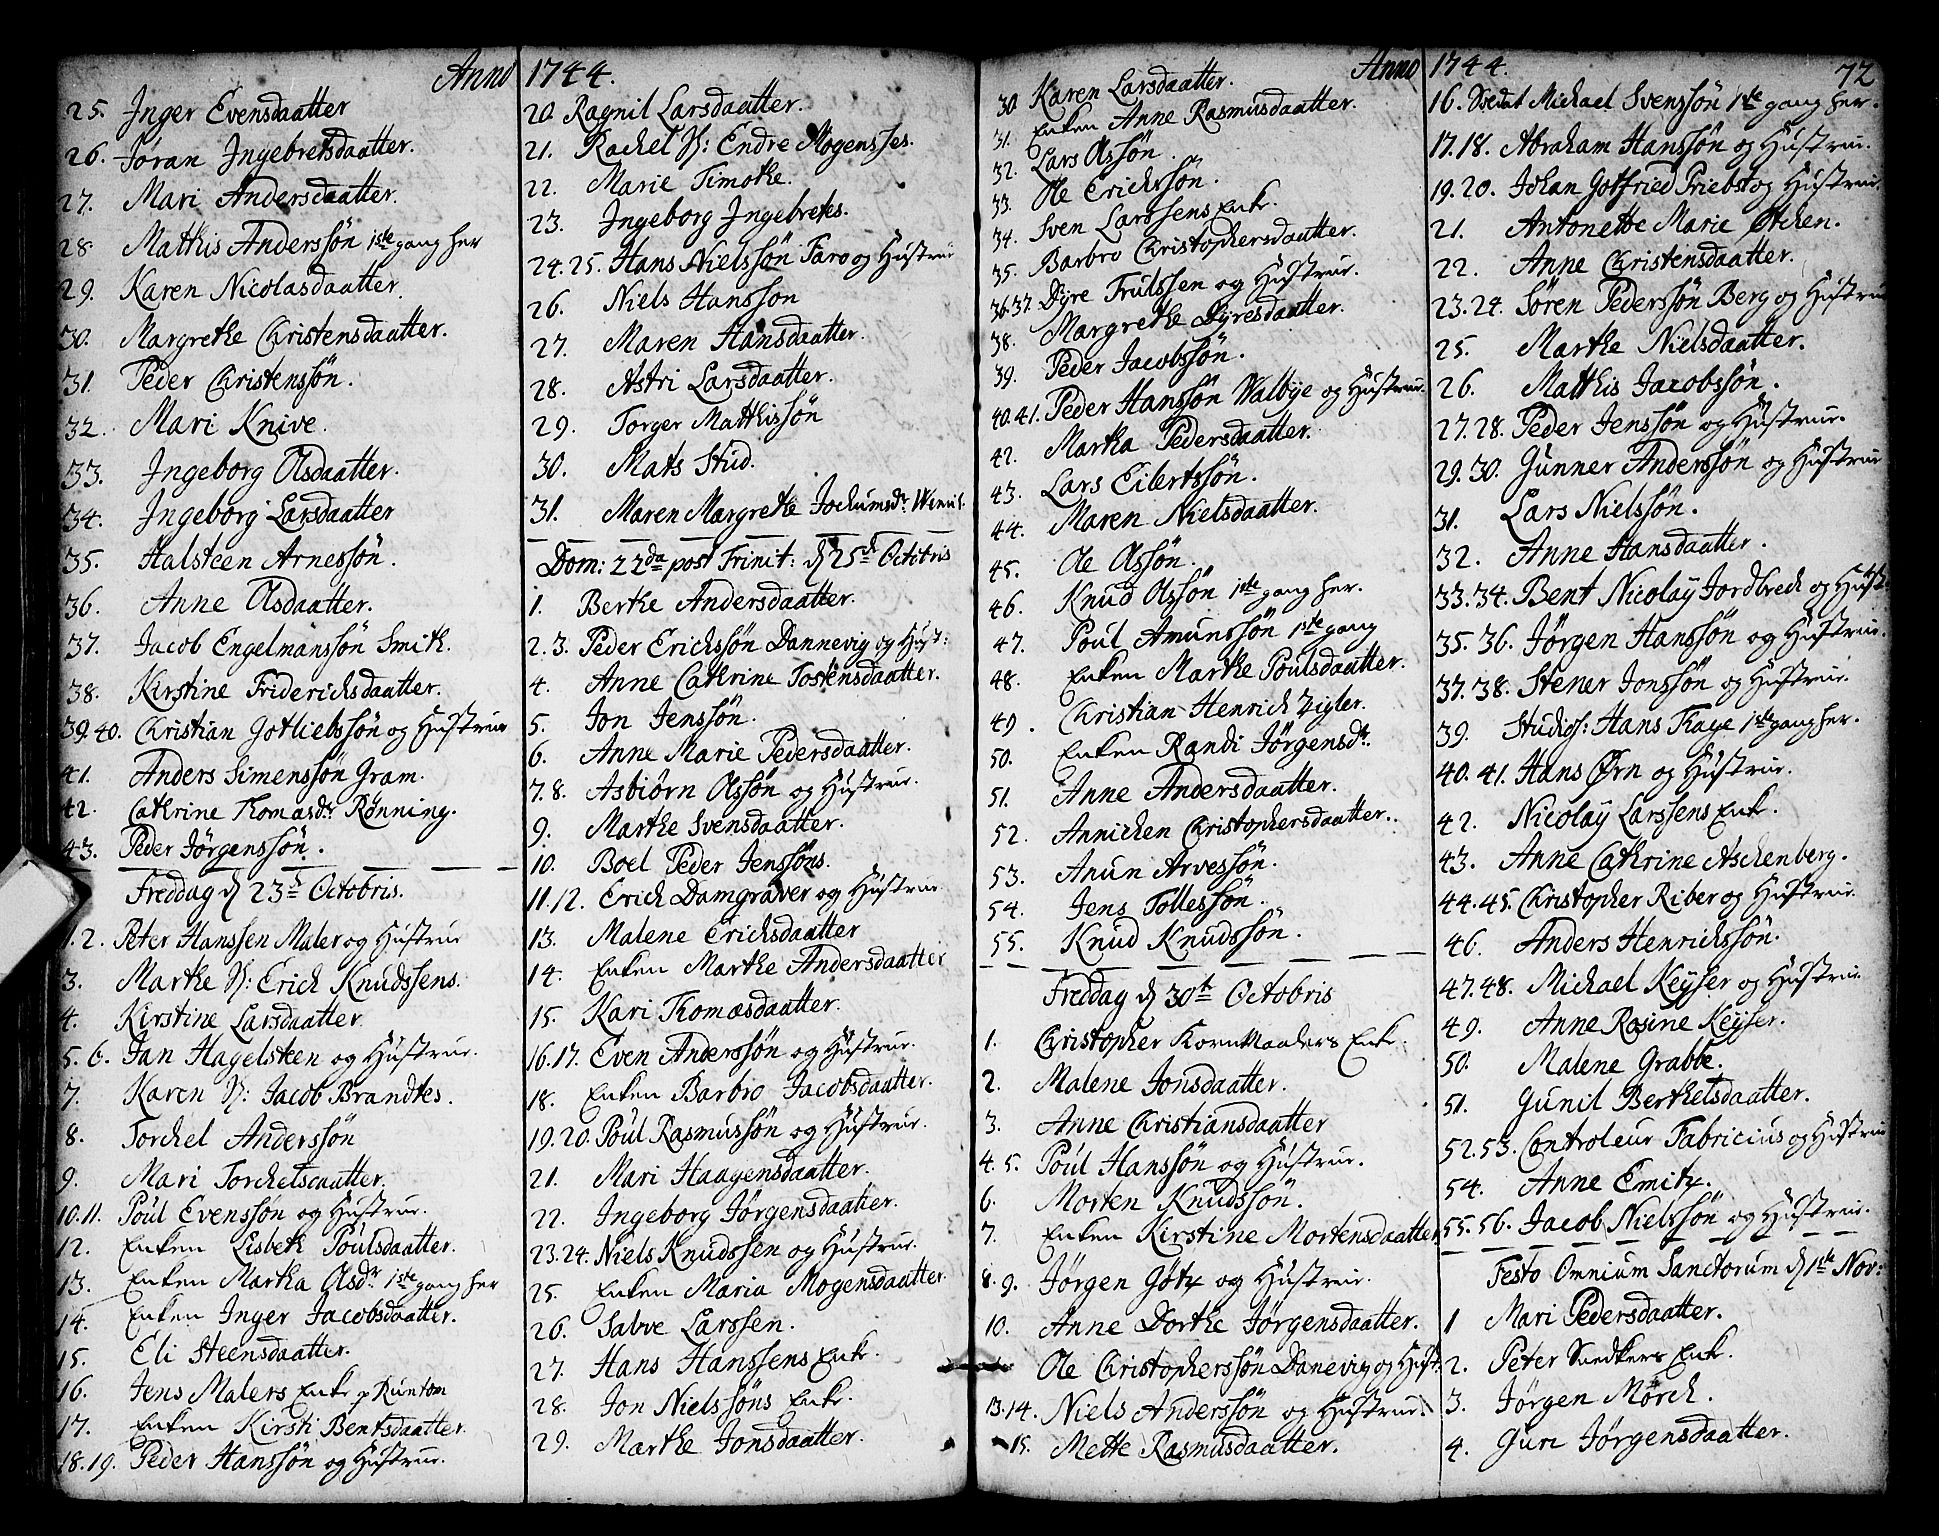 Anno 1744.
25. Inger Evensdaatter
26. Jøran Ingebretsdaatter.
27. Mari Andersdaatter.
28 Mathis Anderssøn 1ste gang her
29. Karen Nicolasdaatter.
30. Margrethe Christensdaatter.
31. Peder Christenssøn.
32. Mari Knive.
33. Ingeborg Olsdaatter.
34. Ingeborg Larsdaatter
35. Halsteen Arnessøn.
36. Anne Olsdaatter.
37. Jacob Engelmanssøn Smith.
38. Kirstine Friderichsdaatter.
39.40. Christian Gotliebssøn og Hustrue
41. Anders Simenssøn Gram.
42. Cathrine Thomasdr Rønning.
43. Peder Jørgenssøn.
Freddag d 23de Octobris.
1.2. Peter Hanssen Maler og Hustrue
3. Marthe H: Erich Knudssens.
4. Kirstine Larsdaatter
5.6. Jan Hagelsteen og Hustrue.
7. Karen H: Jacob Brandtes.
8. Torchel Anderssøn
9. Mari Torchelsdaatter.
10.11. Poul Evenssøn og Hustrue.
12. Enken Lisbeth Poulsdaatter.
13. Enken Martha Olsdr 1ste gang her
14. Enken Inger Jacobsdaatter.
15. Eli Steensdaatter.
16. Jens Malers Enke p Runton
17. Enken Kirsti Bentsdaatter.
18.19. Peder Hanssøn og Hustrue.
20. Ragnil Larsdaatter.
21. Rachel H: Endre Mogensses.
22. Marie Timothe.
23. Ingeborg Ingebretes.
24.25. Hans Nielssøn Faro og Hustrue
26. Niels Hansson
27. Maren Hansdaatter.
28. Astri Larsdaatter.
29. Torger Mathissøn
30. Mats Stud.
31. Maren Margrethe Jochumsdr
Dom: 22da post Trinit: d 25de Octobris
1. Berthe Andersdaatter.
2.3. Peder Erichssøn Dannevig og Hust:
4. Anne Cathrine Tostensdaatter.
5. Jon Jenssøn.
6. Anne Marie Pedersdaatter.
7.8. Asbiørn Olssøn og Hustrue.
9. Marthe Svensdaatter.
10. Boel Peder Jenssøns.
11.12. Erich Damgraver og Hustrue
13. Malene Erichsdaatter
14. Enken Marthe Andersdaatter
15. Kari Thomasdaatter.
16.17. Even Anderssøn og Hustrue.
18. Enken Barbro Jacobsdaatter.
19.20. Poul Rasmussøn og Hustrue.
21. Mari Haagensdaatter.
22. Ingeborg Jørgensdaatter.
23.24. Niels Knudssen og Hustrue.
25. Enken Maria Mogensdaatter
26. Salve Larssen.
27. Hans Hanssens Enke.
28. Jon Nielssøns Enke.
29. Marthe Jonsdaatter.
Anno 1744.
72
30 Karen Larsdaatter.
31. Enken Anne Rasmusdaatter.
32. Lars Olssøn.
33. Ole Erichssøn.
34. Sven Larssens Enke.
35. Barbro Christophersdaatter.
36.37. Dyre Trulssen og Hustrue.
38. Margrethe Dyresdaatter.
39. Peder Jacobssøn.
40.41. Peder Hanssøn Walbye og Hustrue.
42. Martha Pedersdaatter.
43. Lars Eilertssøn.
44. Maren Nielsdaatter.
45. Ole Olssøn.
46. Knud Olssøn 1ste gang her.
47. Poul Amunssøn 1ste gang
48. Enken Marthe Poulsdaatter.
49. Christian Henrich Zigler.
50. Enken Randi Jørgensdr.
51. Anne Andersdaatter.
52. Annichen Christophersdaatter.
53. Anun Arvessøn.
54. Jens Tollessøn.
55. Knud Knudssøn.
Freddag d 30te Octobris
1. Christopher KornMaalers Enke.
2. Malene Jonsdaatter.
3. Anne Christiansdaatter
4.5. Poul Hanssøn og Hustrue.
6. Morten Knudssøn.
7. Enken Kirstine Mortensdaatter
8.9. Jørgen Götz og Hustrue.
10. Anne Dorthe Jørgensdaatter.
Ole Christopherssøn Danevig og Hust.
13.14. Niels Anderssøn og Hustrue.
15. Mette Rasmusdaatter.
16. Svedst Michael Svenssøn 1ste gang her.
17.18. Abraham Hanssøn og Hustrue.
19.20. Johan Gotfried Priebst og Hustrue.
21. Antonette Marie Otken.
22. Anne Christensdaatter.
23.24. Søren Pederssøn Berg og Hustrue
25. Marthe Nielsdaatter.
26. Mathis Jacobssøn.
27.28. Peder Jenssøn og Hustrue.
29.30. Gunner Anderssøn og Hustrue
31. Lars Nielssøn.
32. Anne Hansdaatter.
33.34. Bent Nicolaÿ Jordbrech og Hust.
35.36. Jørgen Hanssøn og Hustrue.
37.38. Stener Jonssøn og Hustrue.
39. Studios: Hans Thaye 1ste gang her.
40.41. Hans Ørn og Hustrue.
42. Nicolaÿ Larssens Enke.
43. Anne Cathrine Aschenberg.
44.45. Christopher Riber og Hustrue.
46. Anders Henrichssøn.
47.48. Michael Keÿser og Hustrue.
49. Anne Rosine Keÿser.
50. Malene Grabbe.
51. Gunil Berthelsdaatter.
52.53. Controleur Fabricius og Hustrue
54. Anne Emitz.
55.56. Jacob Nielssøn og Hustrue.
Festo Omnium Sanctorum d 1ste Nov:
1 Mari Pedersdaatter.
2. Peter Snedkers Enke.
3. Jørgen Mørch.
4. Guri Jørgensdaatter.